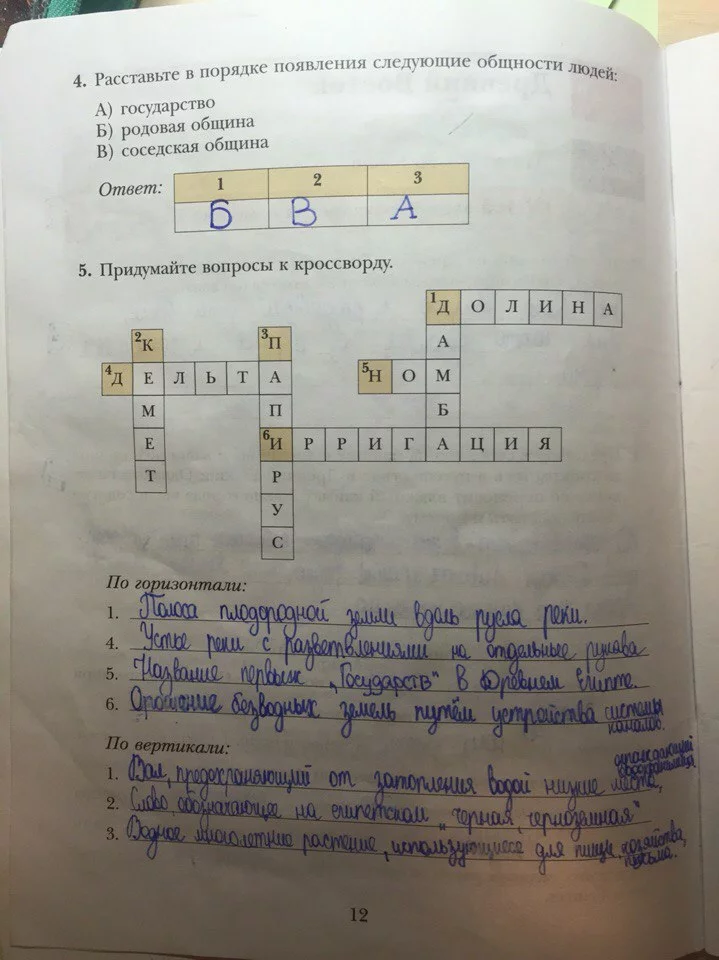 4. Расставьте в порядке появления следующие общности людей:
А) государство
Б) родовая община
В) соседская община
Ответ: 1 2 3
Б В А
5. Придумайте вопросы к кроссворду.
1Д О Л И Н А
2К 3П А
4Д Е Л Ь Т А 5Н О М
М П Б
Е 6И Р Р И Г А Ц И Я
Т Р
У
С
По горизонтали:
1. Полоса плодородной земли вдоль русла реки.
4. Устье реки с разветвлениями на отдельные рукава
5. Название первых „Государств" в Древнем Египте.
6. Орошение безводных земель путём устройства системы каналов.
По вертикали:
1. Вал, предохраняющий от затопления водой низкие места,
2. Слово, обозначающее на египетском „черная, черноземная"
3. Водное многолетние растение, использующиеся для пищи, хозяйства, письма.
12